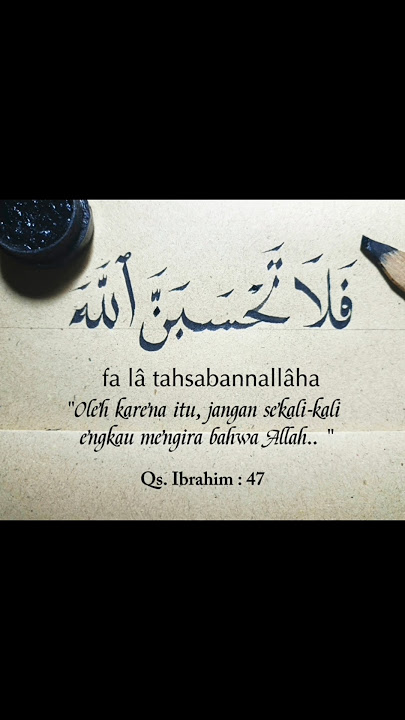 فَلَا تَحْسَبَنَّ ٱللَّهَ
fa lâ tahsabannallâha
"Oleh karena itu, jangan sekali-kali
engkau mengira bahwa Allah.. "
Qs. Ibrahim : 47